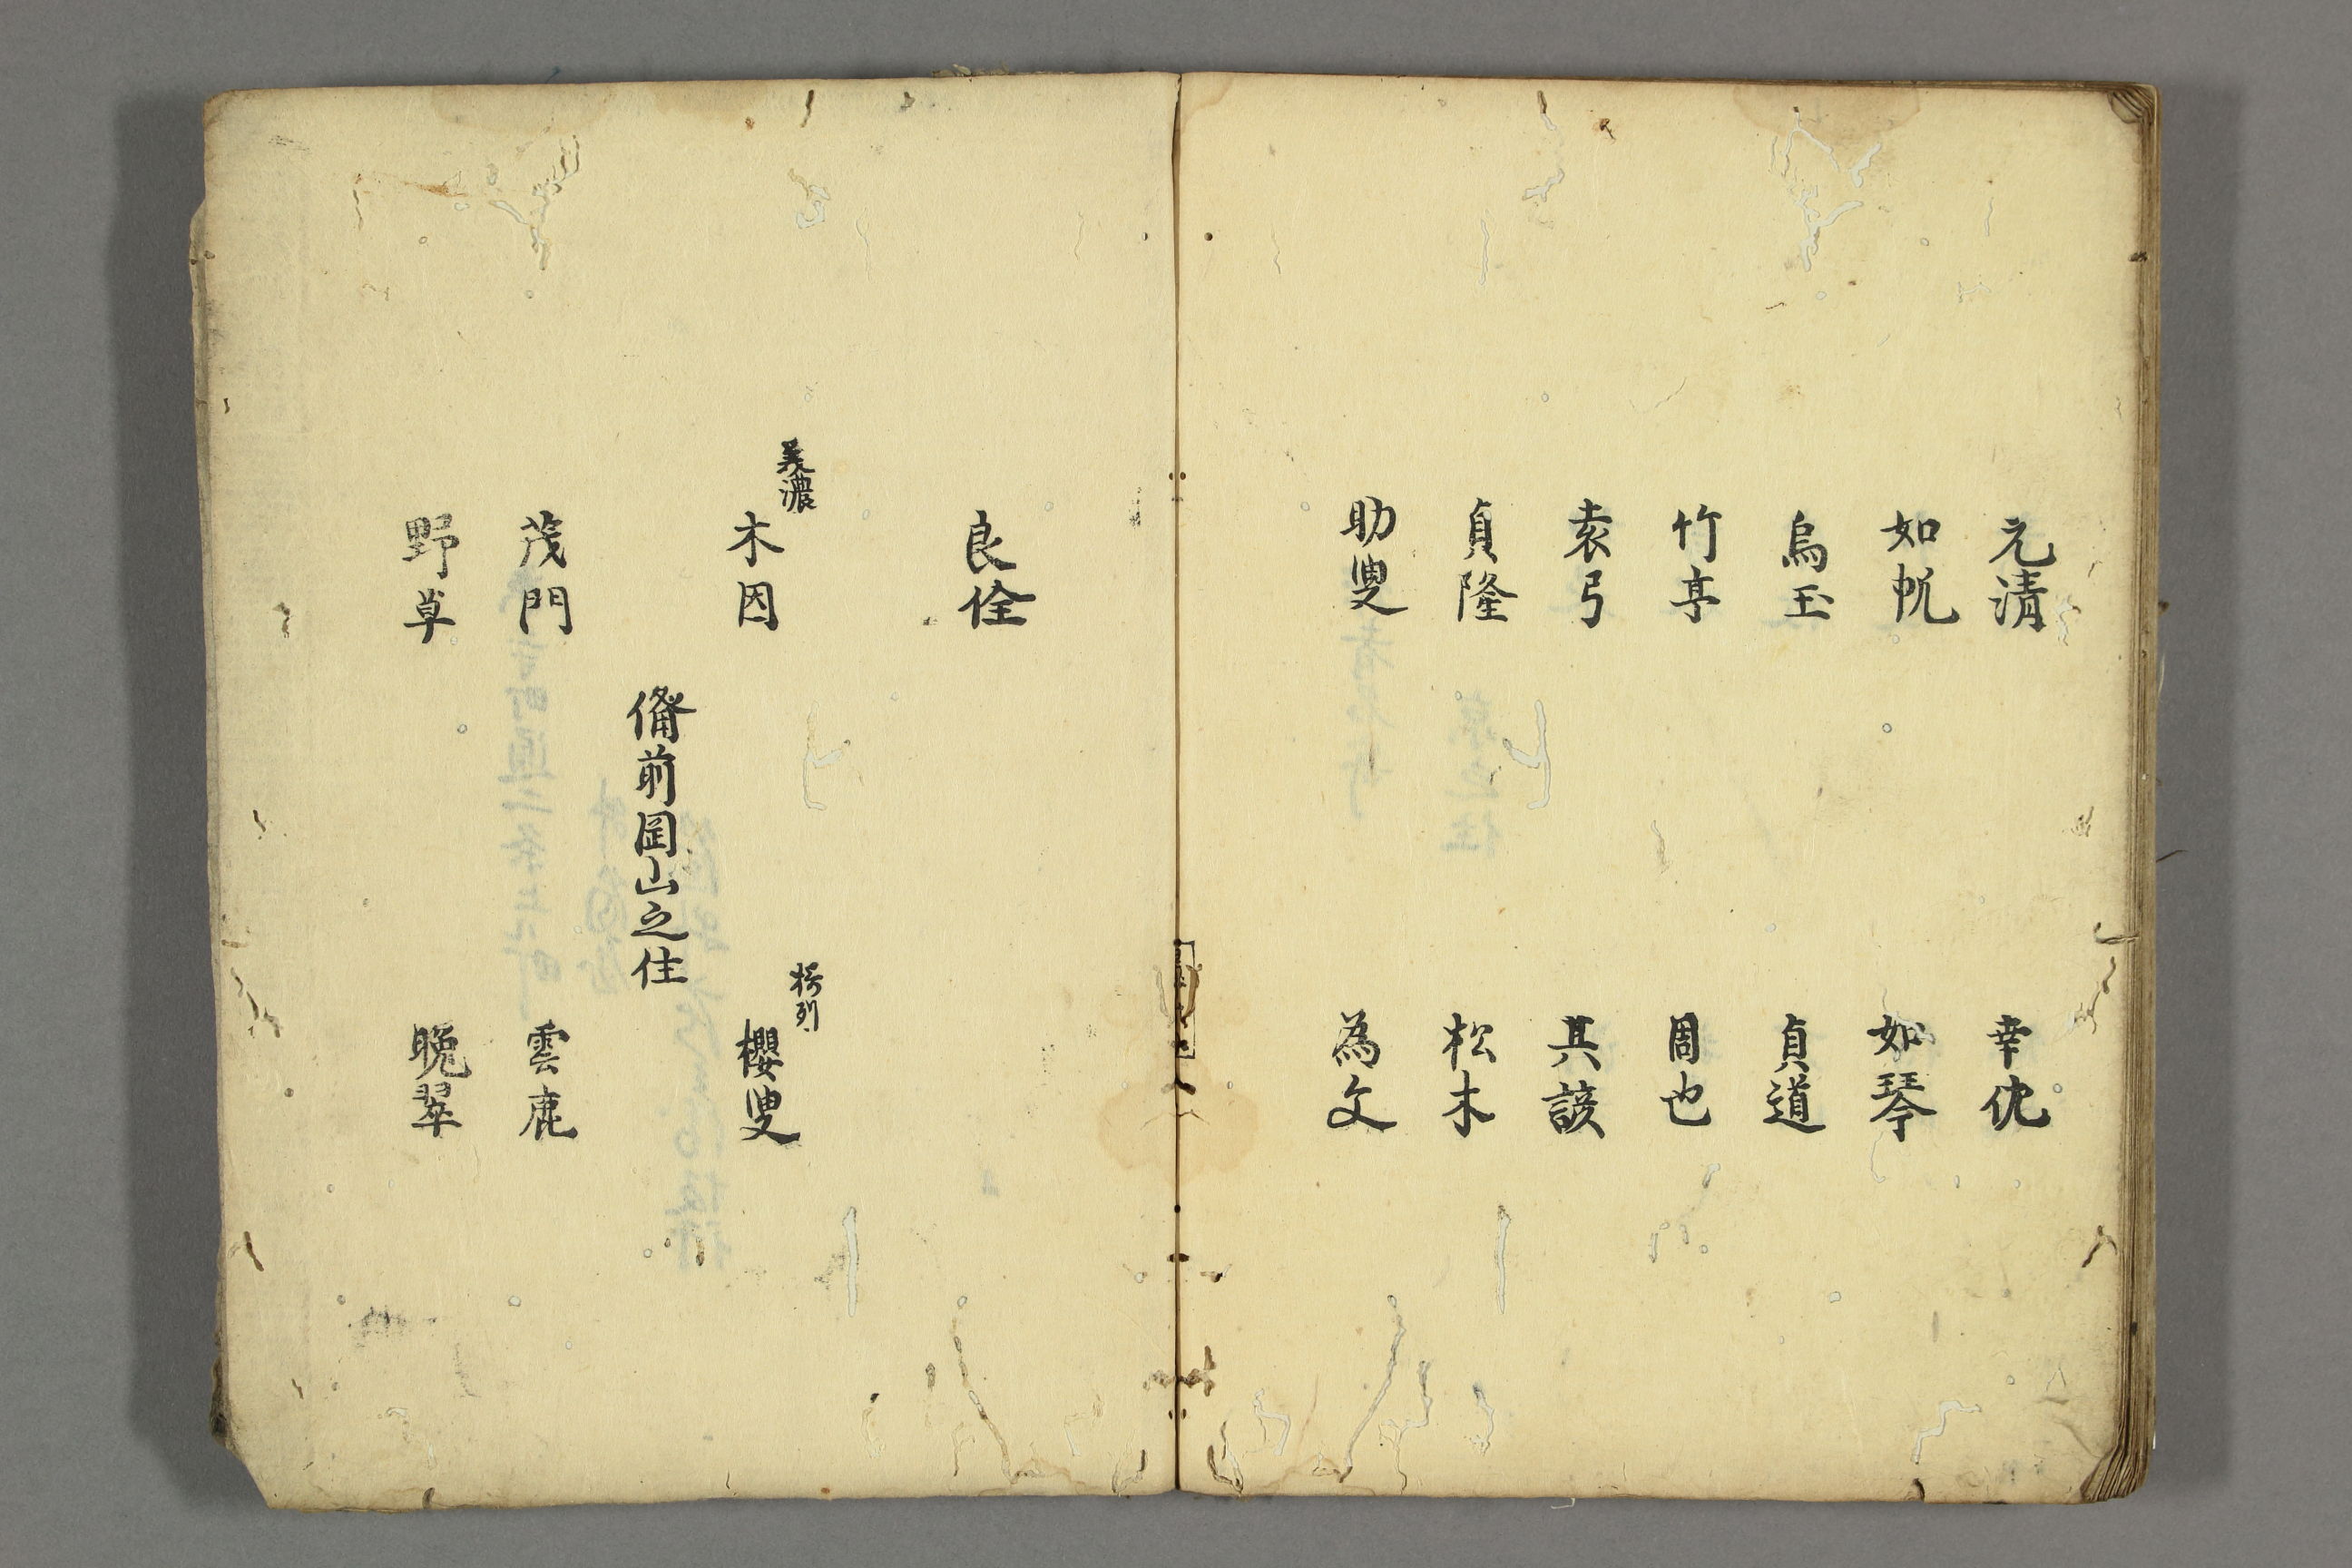 元清　幸佐
如帆　如琴
烏玉　貞道
竹亭　周也
袁弓　其諺
貞隆　松木
助叟　為文
良佺
美濃
木因
櫻叟
備前岡山之住
茂門　雲鹿
野草　晩翠